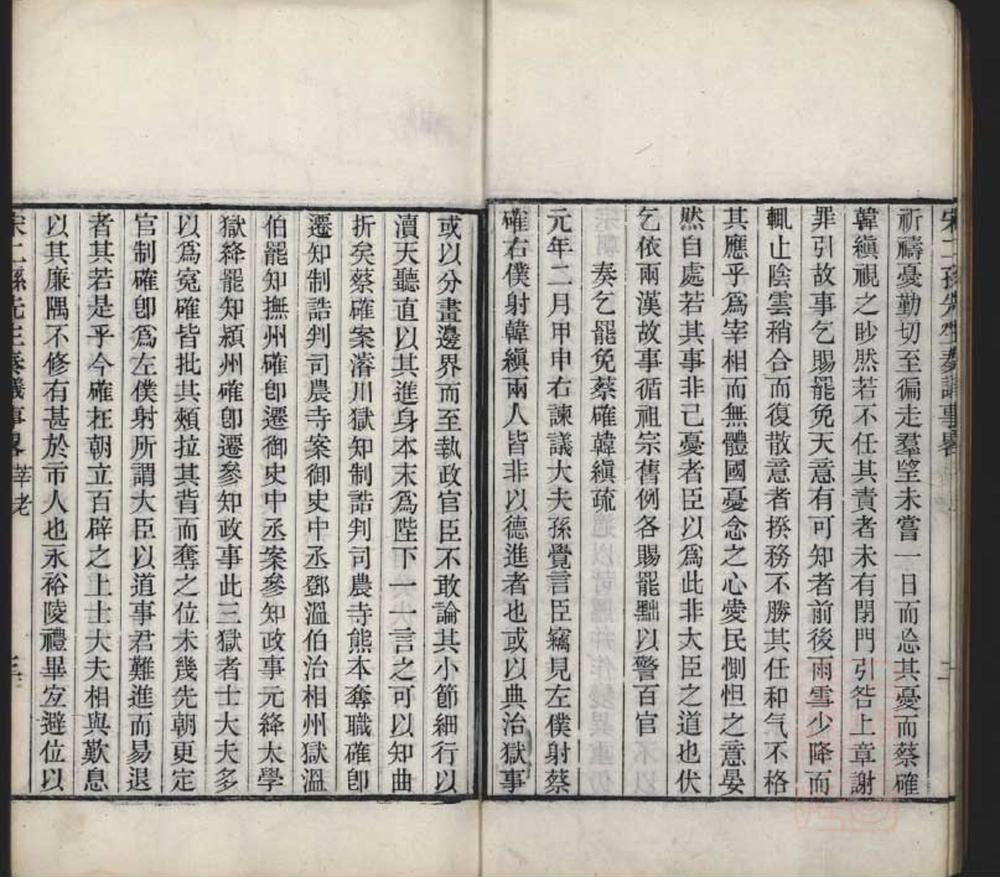 宋二孫先生奏議事畧
二
祈禱憂勤切至徧走羣望未嘗一日而忘其憂而蔡確
韓縝視之眇然若不任其責者未有閉門引咎上章謝
罪引故事乞賜罷免天意有可知者前後雨雪少降而
輒止陰雲稍合而復散意者揆務不勝其任和气不格
其應乎爲宰相而無體國憂念之心愛民惻怛之意晏
然自處若其事非己憂者臣以爲此非大臣之道也伏
乞依兩漢故事循祖宗舊例各賜罷黜以警百官
奏乞罷免蔡確韓縝疏
元年二月甲申右諫議大夫孫覺言臣竊見左僕射蔡
確右僕射韓縝兩人皆非以德進者也或以典治獄事
或以分畫邊界而至執政官臣不敢論其小節細行以
瀆天聽直以其進身本末爲陛下一一言之可以知曲
折矣蔡確案濬川獄知制誥判司農寺熊本奪職確卽
遷知制誥判司農寺案御史中丞鄧溫伯治相州獄溫
伯罷知撫州確卽遷御史中丞案參知政事元絳太學
獄絳罷知潁州確卽遷參知政事此三獄者士大夫多
以爲寃確皆批其頰拉其背而奪之位未幾先朝更定
官制確卽爲左僕射所謂大臣以道事君難進而易退
者其若是乎今確在朝立百辟之上士大夫相與歎息
以其廉隅不修有甚於市人也永裕陵禮畢宜避位以
宋二孫先生奏議事畧 莘老
三